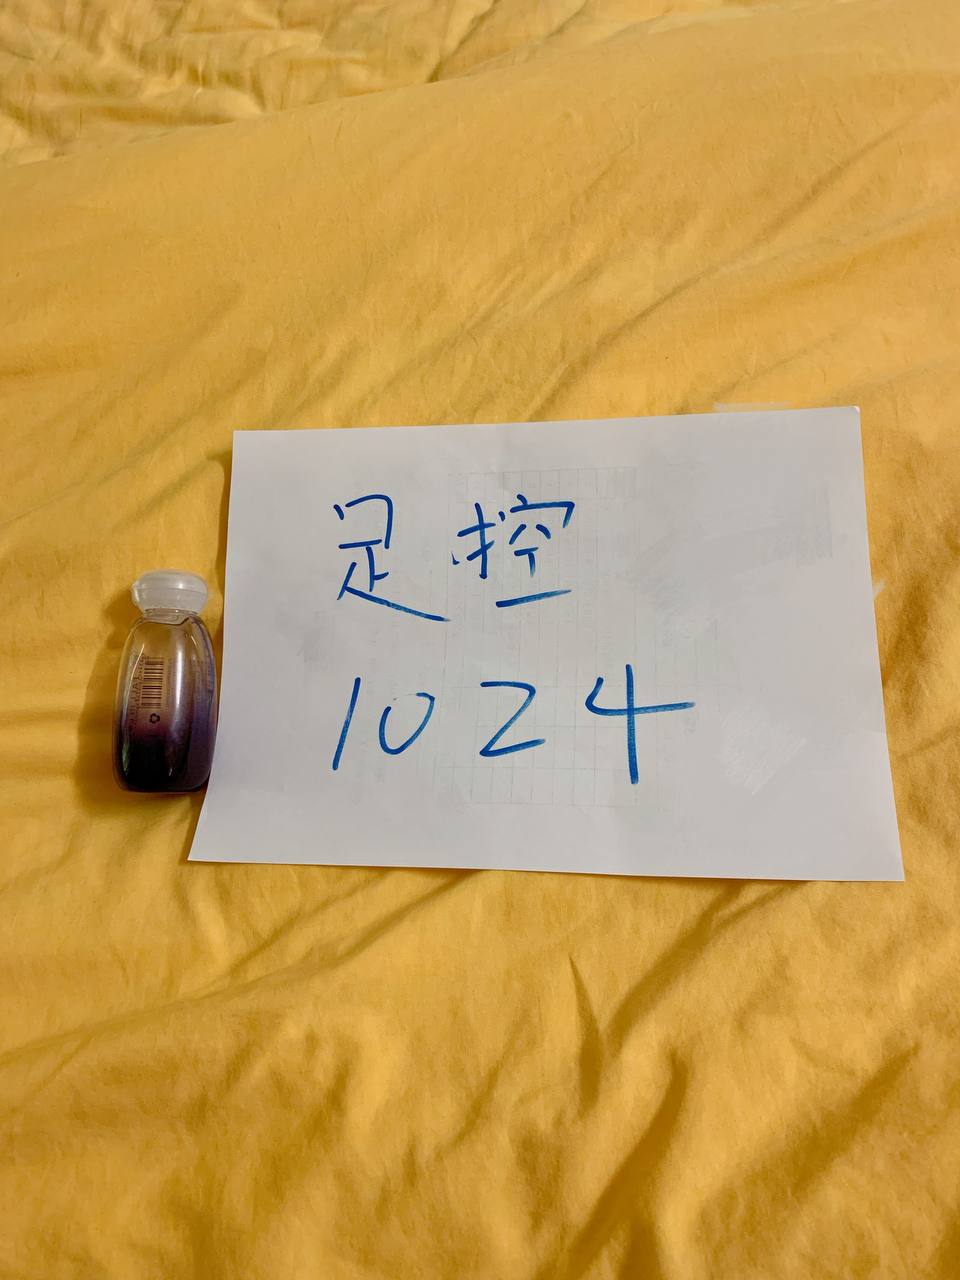 足控
1024